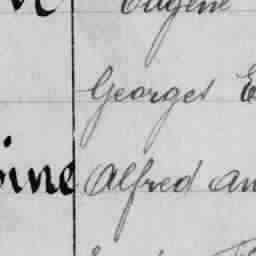 Eugène
Georges E
oine Alfred An